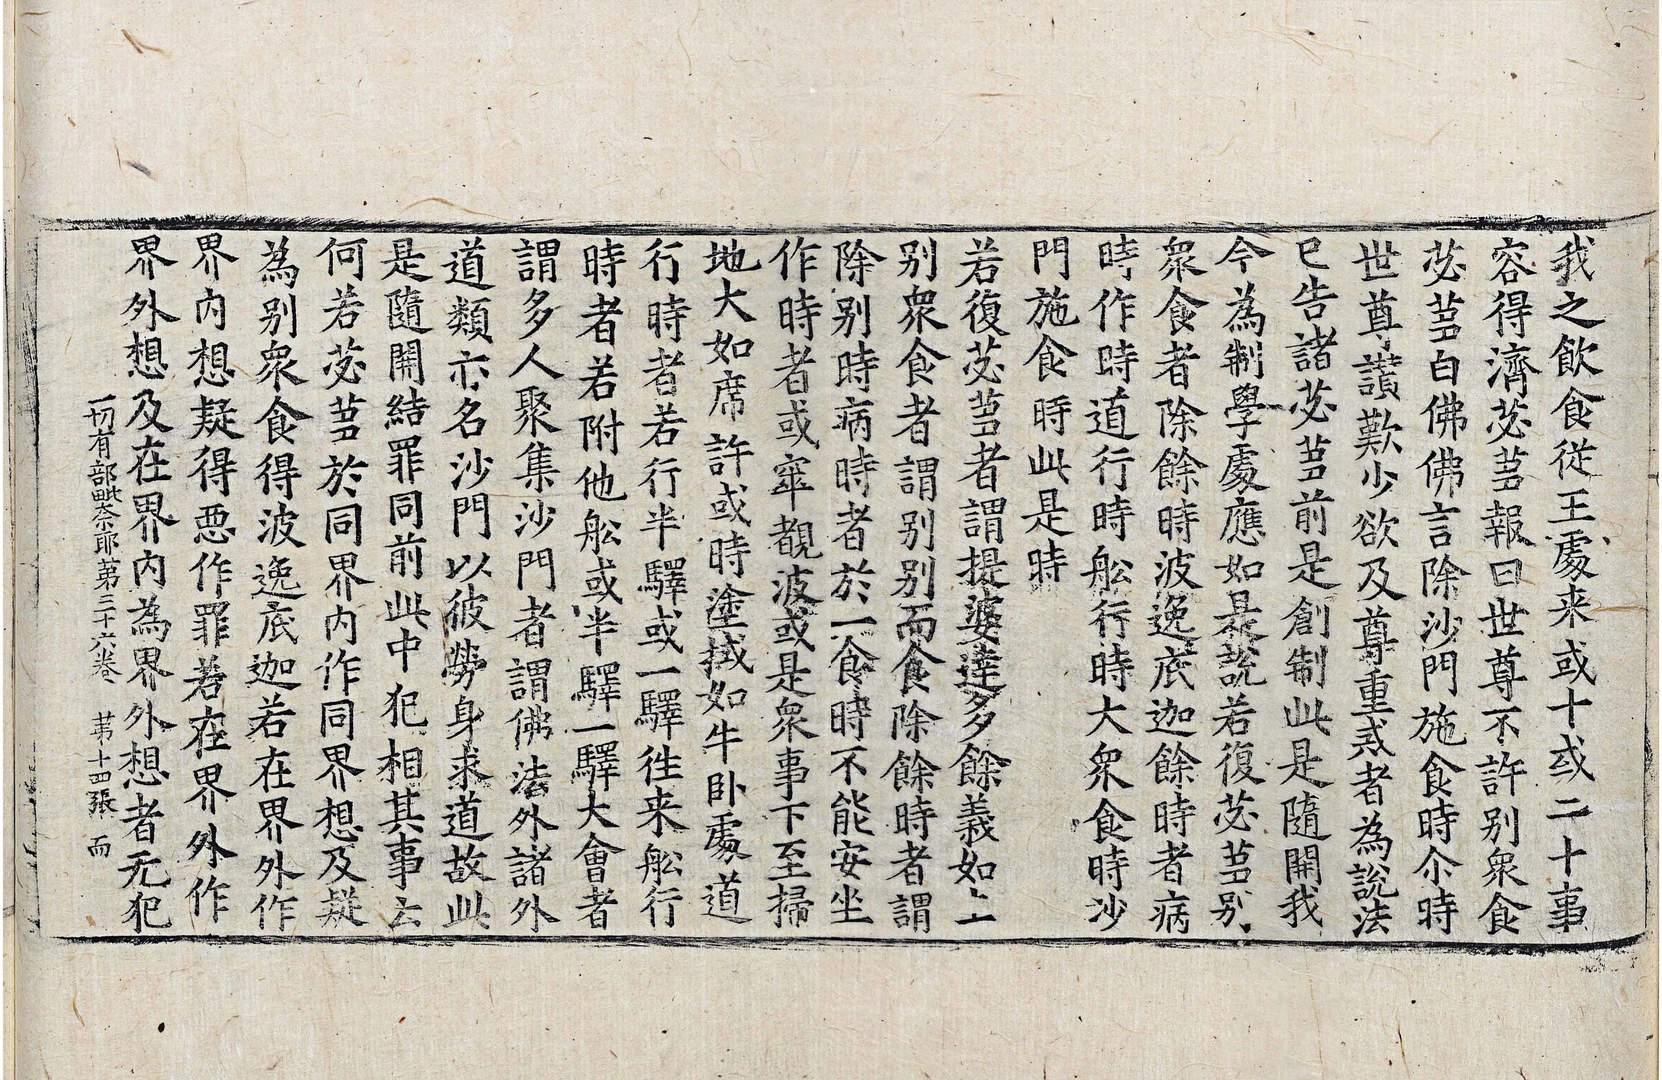 我之飲食従王處来或十或二十事
容得濟苾芻報曰世尊不許別衆食
苾芻白佛佛言除沙門施食時尒時
世尊讃歎少欲及尊重戒者為說法
已告諸苾芻前是創制此是隨開我
今為制學處應如是說若復苾芻別
衆食者除餘時波逸底迦餘時者病
時作時道行時舩行時大衆食時沙
門施食時此是時
若復苾芻者謂提婆達多餘義如上
別衆食者謂別別而食除餘時者謂
除別時病時者於一食時不能安坐
作時者或窣覩波或是衆事下至掃
地大如席許或時塗拭如牛卧處道
行時者若行半驛或一驛徃来舩行
時者若附他舩或半驛一驛大會者
謂多人聚集沙門者謂佛法外諸外
道類亦名沙門以彼勞身求道故此
是隨開結罪同前此中犯相其事云
何若苾芻於同界内作同界想及疑
為別衆食得波逸底迦若在界外作
界内想疑得惡作罪若在界外作
界外想及在界内為界外想者无犯
一切有部毗奈耶第三十六卷 第十四張 而